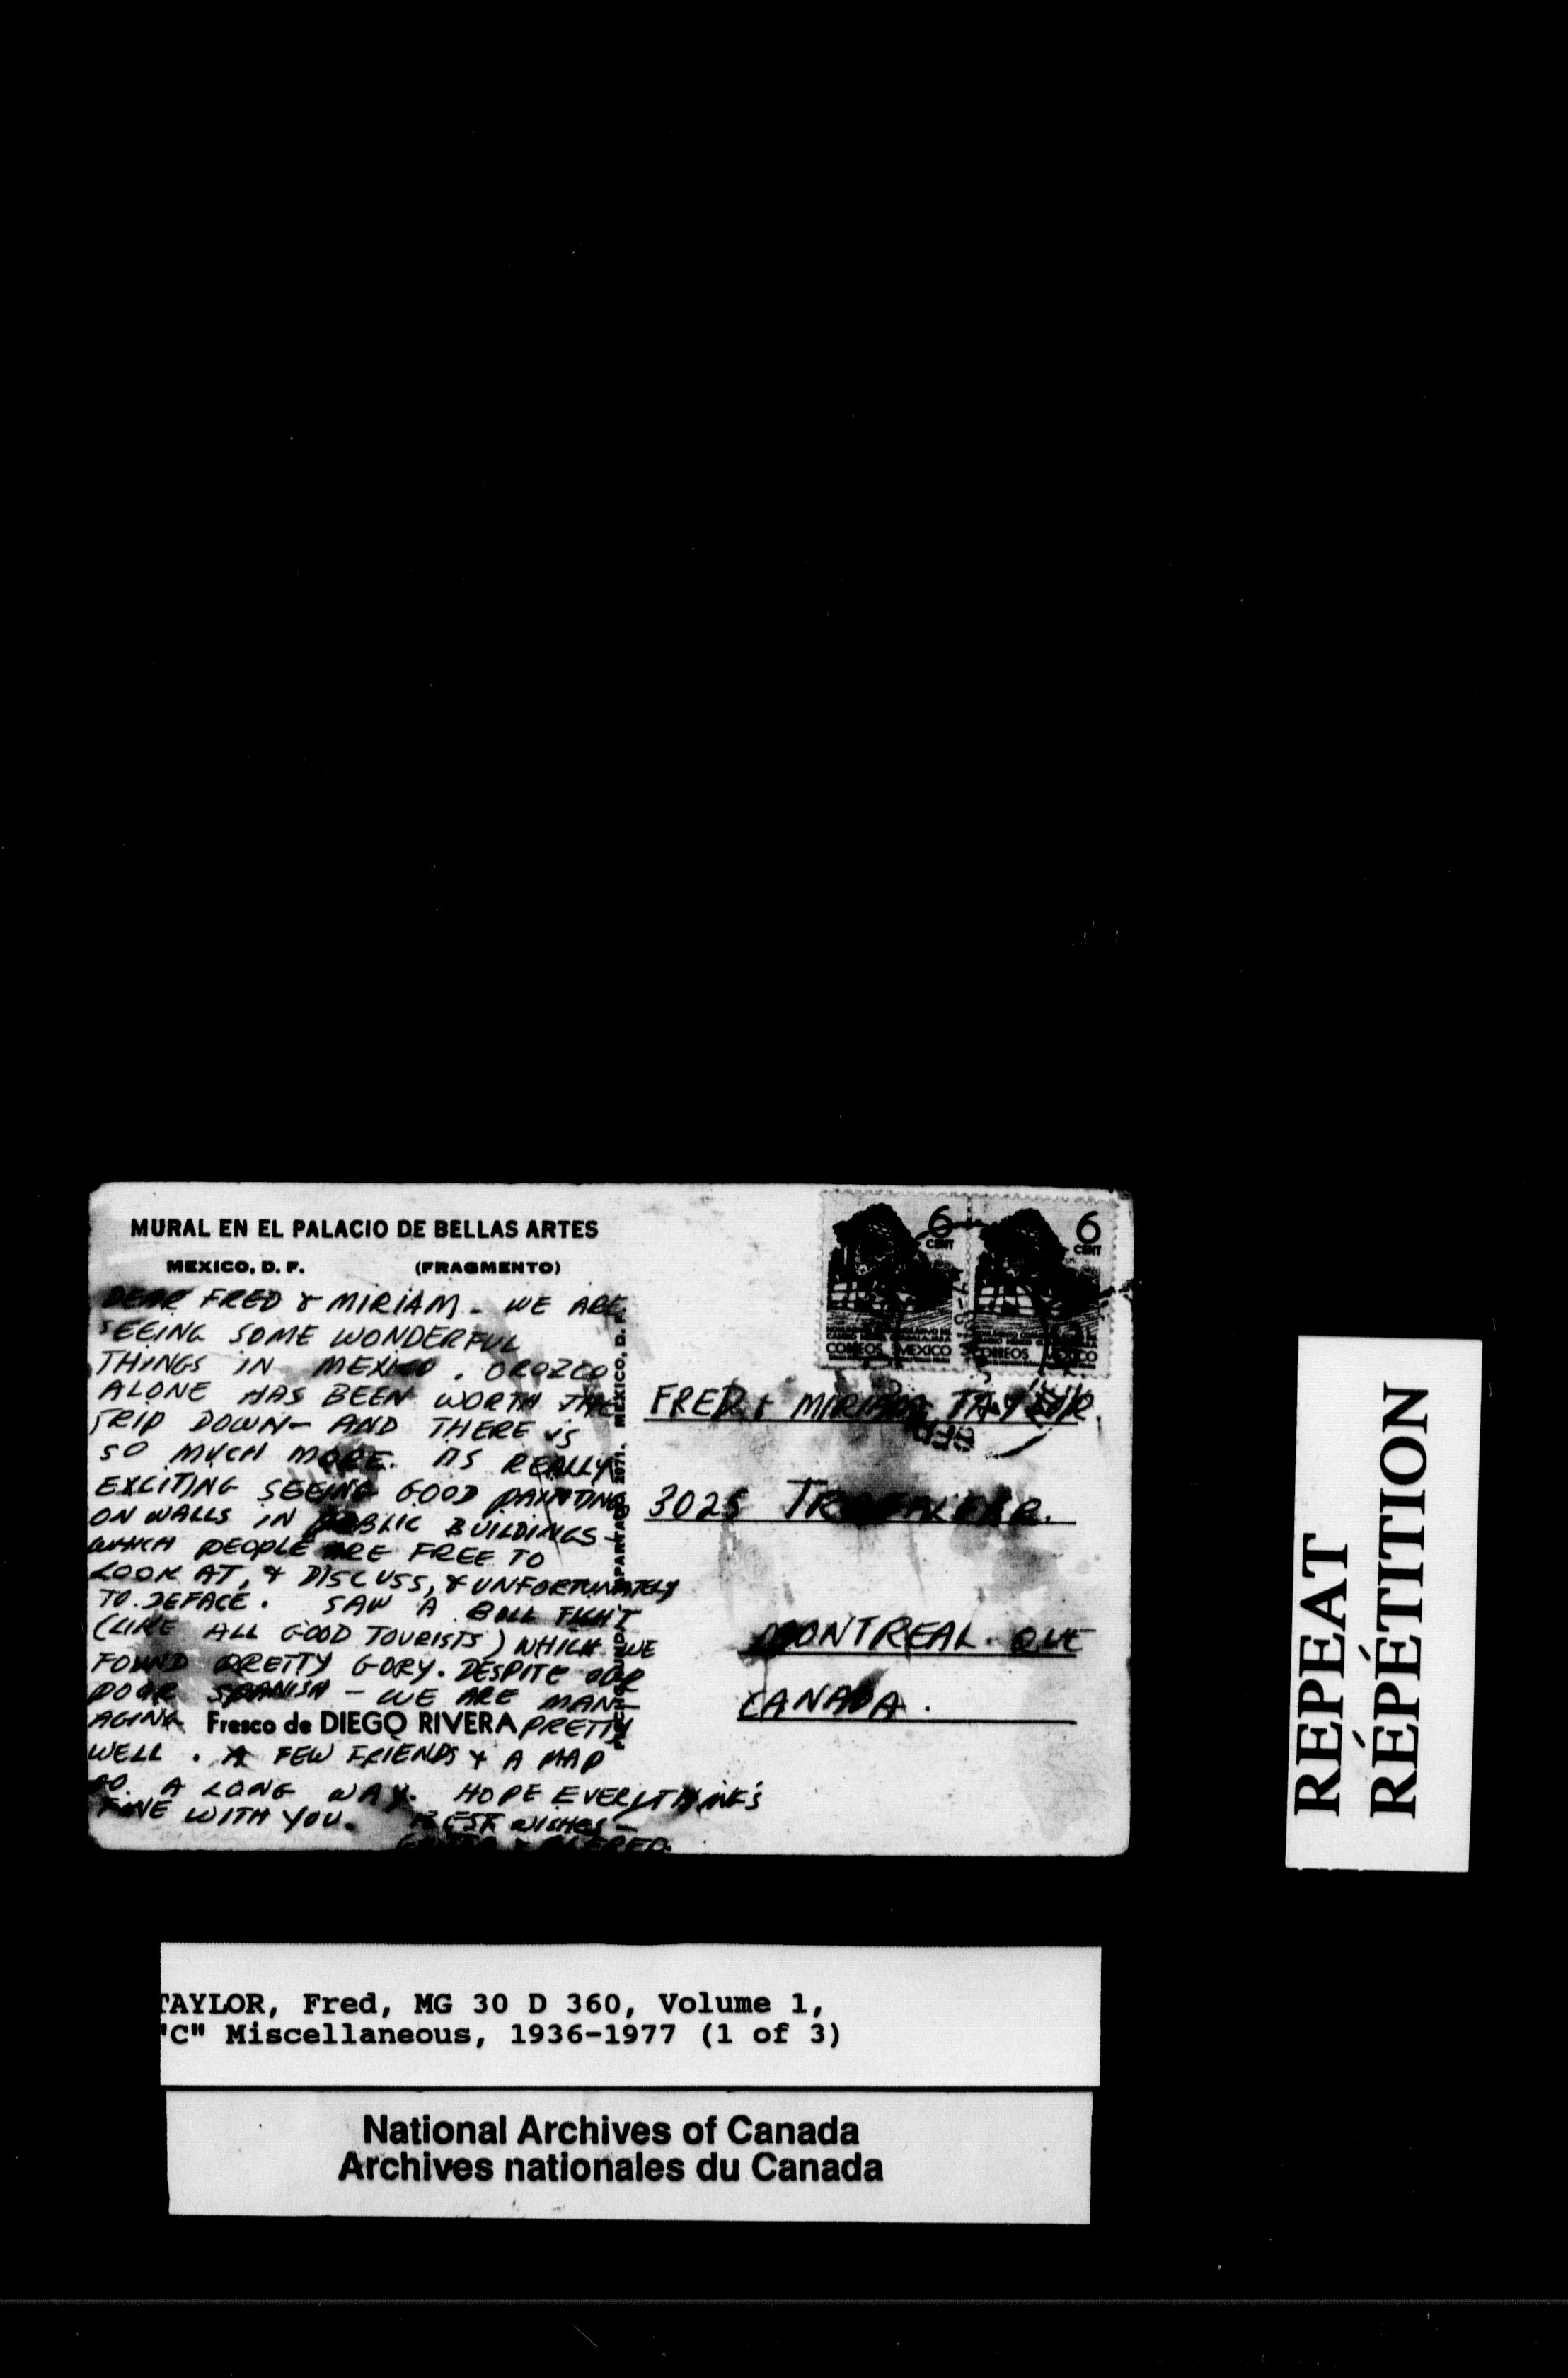 MURAL EN EL PALACIO DE BELLAS ARTES
MEXICO, D. F. (FRAGMENTO)
DEAR FRED & MIRIAM - WE ARE
SEEING SOME WONDERFUL
THINGS IN MEXICO. OROZCO
ALONE HAS BEEN WORTH THE
TRIP DOWN - AND THERE IS
SO MUCH MORE. ITS REALLY
EXCITING SEEING GOOD PAINTING
ON WALLS IN PUBLIC BUILDINGS -
WHICH PEOPLE ARE FREE TO
LOOK AT, & DISCUSS, & UNFORTUNATELY
TO DEFACE. SAW A BULL FIGHT
(LIKE ALL GOOD TOURISTS) WHICH WE
FOUND PRETTY GORY. DESPITE OUR
POOR SPANISH - WE ARE MAN-
AGING PRETTY
Fresco de DIEGO RIVERA
WELL. A FEW FRIENDS & A MAP
GO A LONG WAY. HOPE EVERYTHING'S
FINE WITH YOU. BEST WISHES -
APARTADO 2071. MEXICO, D. F.
6 CENT
CORREOS MEXICO
6 CENT
CORREOS MEXICO
FRED & MIRIAM TAYLOR.
3025 TRAFALGAR.
MONTREAL. QUE
CANADA.
REPEAT
RÉPÉTITION
TAYLOR, Fred, MG 30 D 360, Volume 1,
"C" Miscellaneous, 1936-1977 (1 of 3)
National Archives of Canada
Archives nationales du Canada